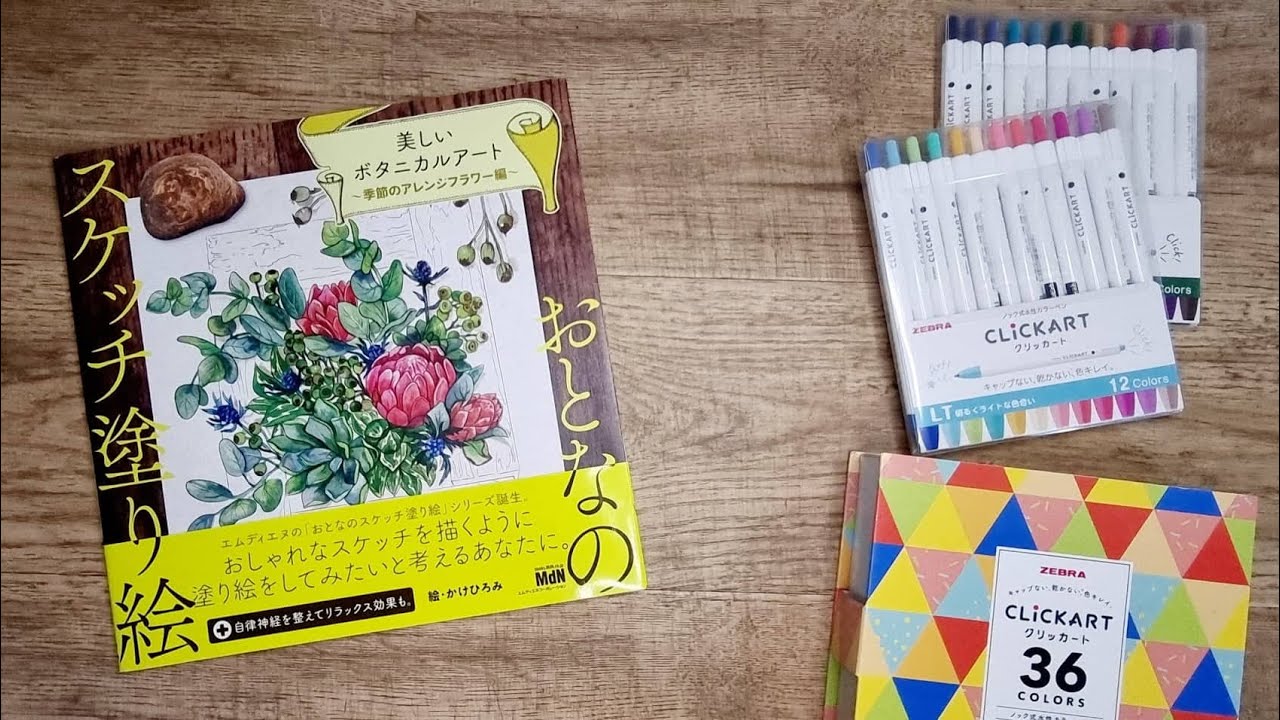 美しい
ボタニカルアート
～季節のアレンジフラワー編～
おとなの
スケッチ塗り絵
エムディエヌの「おとなのスケッチ塗り絵」シリーズ誕生。
おしゃれなスケッチを描くように
塗り絵をしてみたいと考えるあなたに。
+自律神経を整えてリラックス効果も。
絵・かけひろみ
MdN
エムディエヌコーポレーション
Colors
ノック式水性カラーペン
ZEBRA
CLiCKART
クリッカート
キャップない、乾かない、色キレイ。
12 Colors
LT 明るくライトな色合い
ZEBRA
キャップない、乾かない、色キレイ。
CLiCKART
クリッカート
36
COLORS
ノック式水性カラー